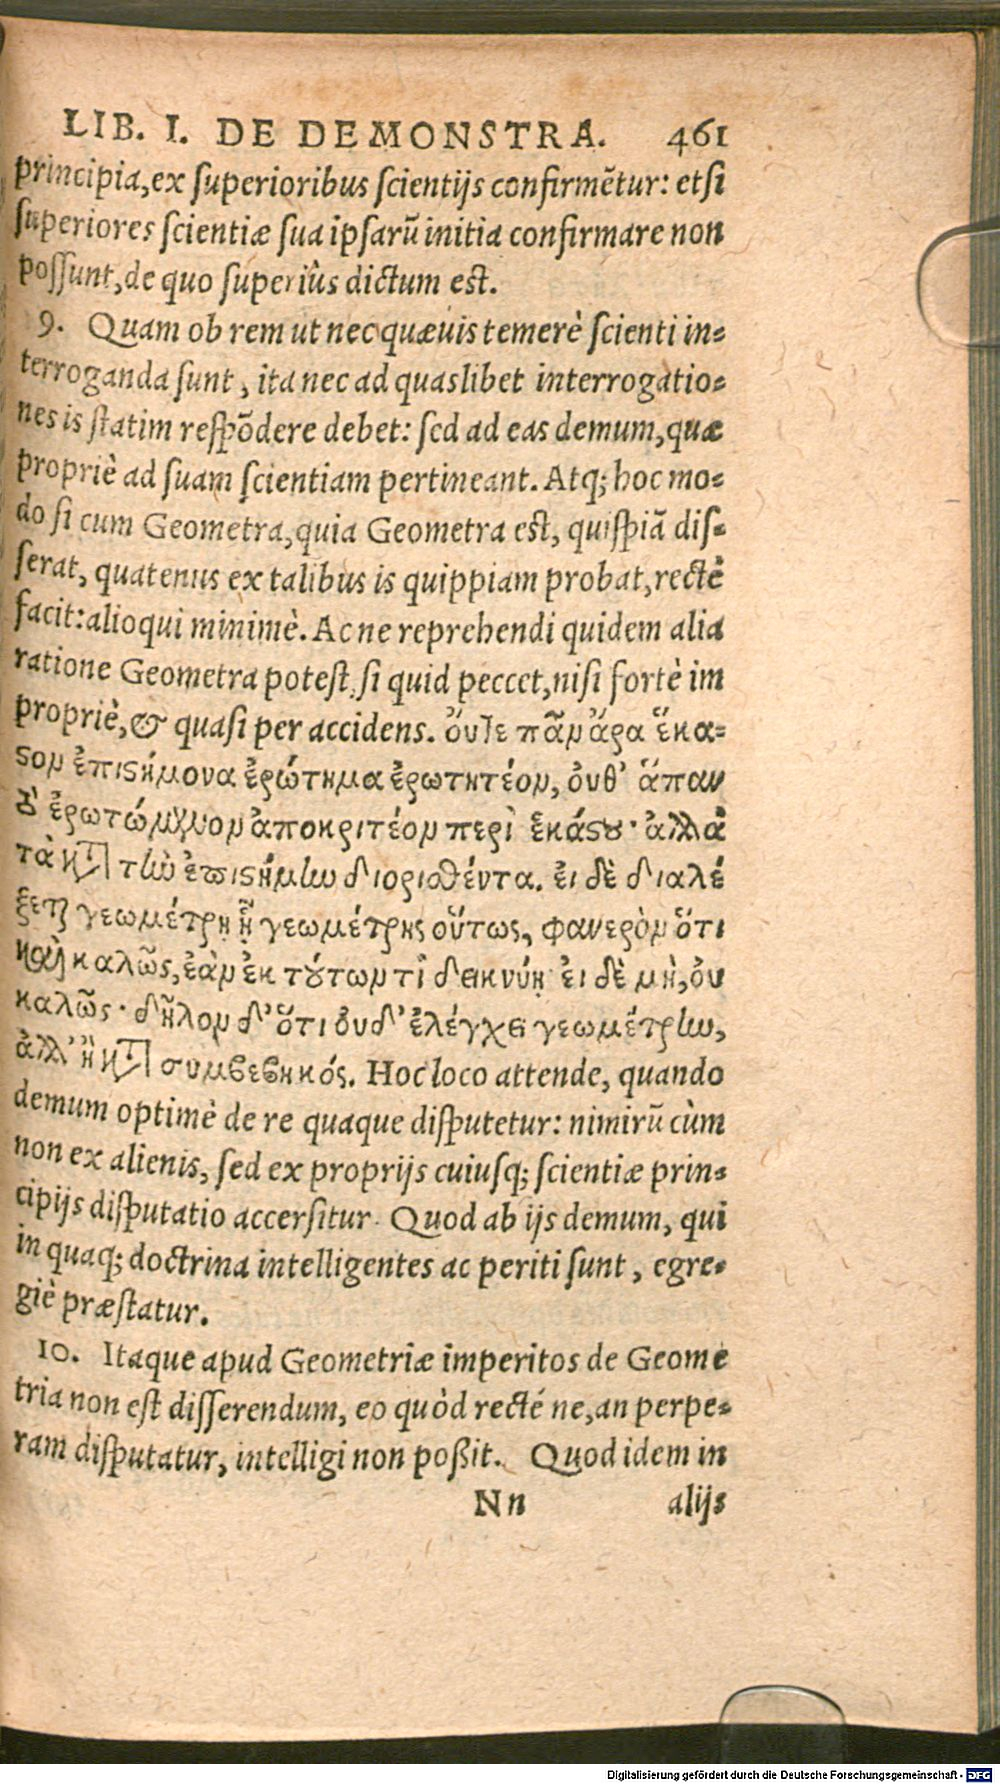 LIB. I. DE DEMONSTRA. 461
principia, ex superioribus scientijs confirmẽtur: etsi
superiores scientiæ sua ipsarũ initia confirmare non
possunt, de quo superiùs dictum est.
9. Quam ob rem ut nec quæuis temerè scienti in-
terroganda sunt, ita nec ad quaslibet interrogatio-
nes is statim respõdere debet: sed ad eas demum, quæ
propriè ad suam scientiam pertineant. Atq; hoc mo-
do si cum Geometra, quia Geometra est, quispiã dis-
serat, quatenus ex talibus is quippiam probat, rectè
facit: alioqui minimè. Ac ne reprehendi quidem alia
ratione Geometra potest, si quid peccet, nisi fortè im
propriè, & quasi per accidens. ὄυτε πᾶν ἄρα ἕκα-
ϛον ἐπιϛήμονα ἐρώτημα ἐρωτητέον, ὀυθ' ἅπαν
τὸ ἐρωτώμενον ἀποκριτέον περὶ ἑκάϛου· ἀλλὰ
τὰ κατὰ τὴν ἐπιϛήμην διορισθέντα. ἐι δὲ διαλέ
ξεται γεωμέτρῃ ᾗ γεωμέτρης οὕτως, φανερὸν ὅτι
καὶ καλῶς, ἐὰν ἐκ τούτων τὶ δεικνύῃ· ἐι δὲ μὴ, ὀυ
καλῶς· δῆλον δ' ὅτι ὀυδ' ἐλέγχει γεωμέτρην,
ἀλλ' ἢ κατὰ συμβεβηκός. Hoc loco attende, quando
demum optimè de re quaque disputetur: nimirũ cùm
non ex alienis, sed ex proprijs cuiusq; scientiæ prin-
cipijs disputatio accersitur. Quod ab ijs demum, qui
in quaq; doctrina intelligentes ac periti sunt, egre-
giè præstatur.
10. Itaque apud Geometriæ imperitos de Geome
tria non est disserendum, eo quòd recté ne, an perpe-
ram disputatur, intelligi non poßit. Quod idem in
Nn alijs
Digitalisierung gefördert durch die Deutsche Forschungsgemeinschaft - DFG